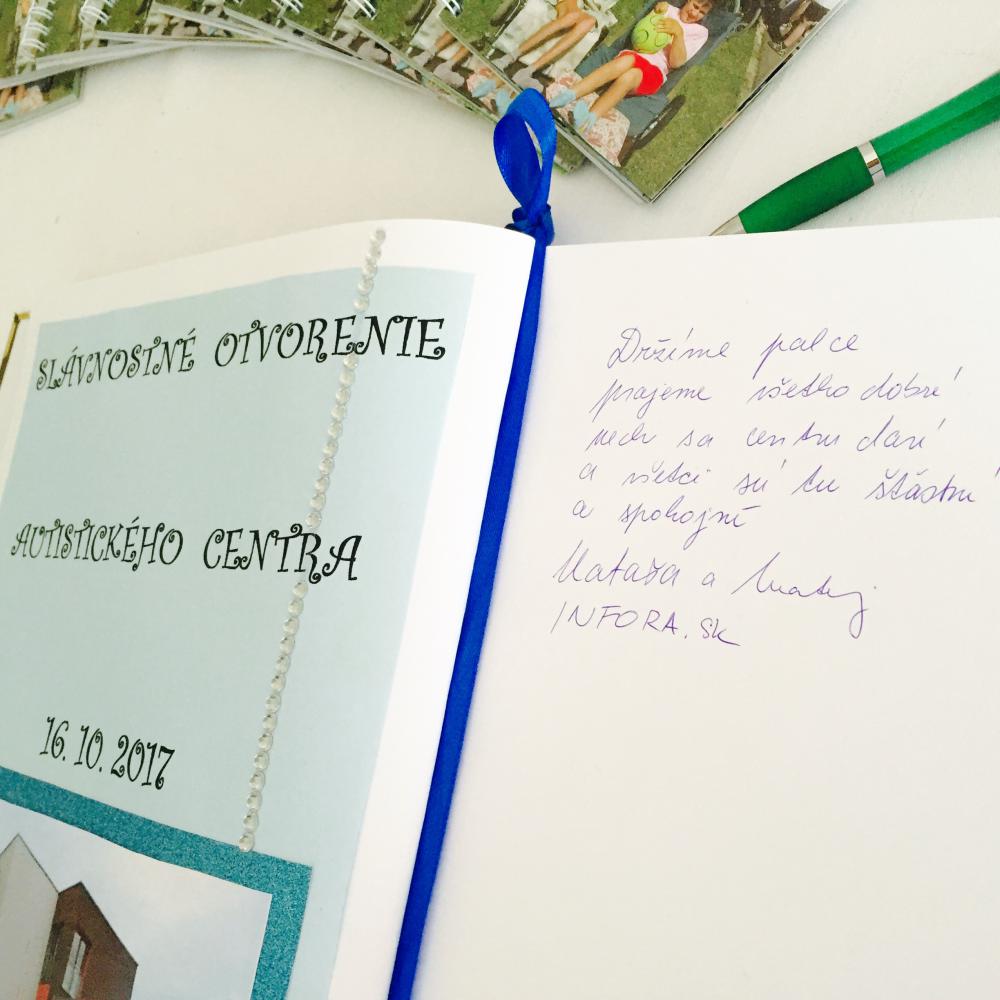 SLÁVNOSTNÉ OTVORENIE
AUTISTICKÉHO CENTRA
16. 10. 2017
Držíme palce
prajeme všetko dobré
nech sa centru darí
a všetci sú tu šťastní
a spokojní
Nataša a Matej
INFORA.sk